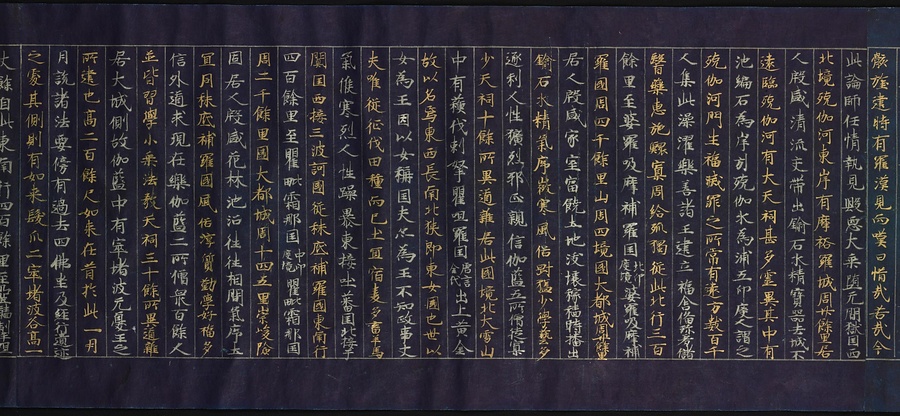 骸旋遽時有羅漢見而嘆曰惜哉苦哉今
此論師任情執見毀惡大乘墮无間獄國西
北境殑伽河東岸有摩裕羅城周廿餘里居
人殷盛清流交帶出鍮石水精寶器去城不
遠臨殑伽河有大天祠甚多靈異其中有
池編石為岸引殑伽水為浦五印度人謂之
殑伽河門生福滅罪之所常有遠方數百千
人集此澡濯樂善諸王建立福舍備珍羞儲
醫藥惠施鰥寡周給孤獨從此北行三百
餘里至婆羅吸摩補羅国北印度境婆羅吸摩補
羅國周四千餘里山周四境國大都城周廿餘里
居人殷盛家室富饒土地沃壤稼穡時播出
鍮石水精氣序微寒風俗剛猛少學藝多
逐利人性獷烈邪正雜信伽藍五所僧徒寡
少天祠十餘所異道雜居此國境北大雪山
中有蘇伐剌拏瞿呾羅國唐言金氏出上黃金
故以名焉東西長南北狹即東女國也世以
女為王因以女稱国夫亦為王不知政事丈
夫唯征伐田種而已土宜宿麦多畜羊馬
氣候寒烈人性躁暴東接吐蕃国北接于
闐国西接三波訶國從秣底補羅國東南行
四百餘里至瞿毗霜那国中印度境瞿毗霜那国
周二千餘里國大都城周十四五里崇峻險
固居人殷盛花林池沼往往相間氣序土
宜同秣底補羅國風俗淳質勤學好福多
信外道求現在樂伽藍二所僧衆百餘人
並皆習學小乘法教天祠三十餘所異道雜
居大城側故伽藍中有窣堵波无憂王之
所建也高二百餘尺如來在昔於此一月
月說諸法要傍有過去四佛坐及經行遺迹
之處其側則有如來髮爪二窣堵波各高一
丈餘自此東南行四百餘里至堊醯掣呾